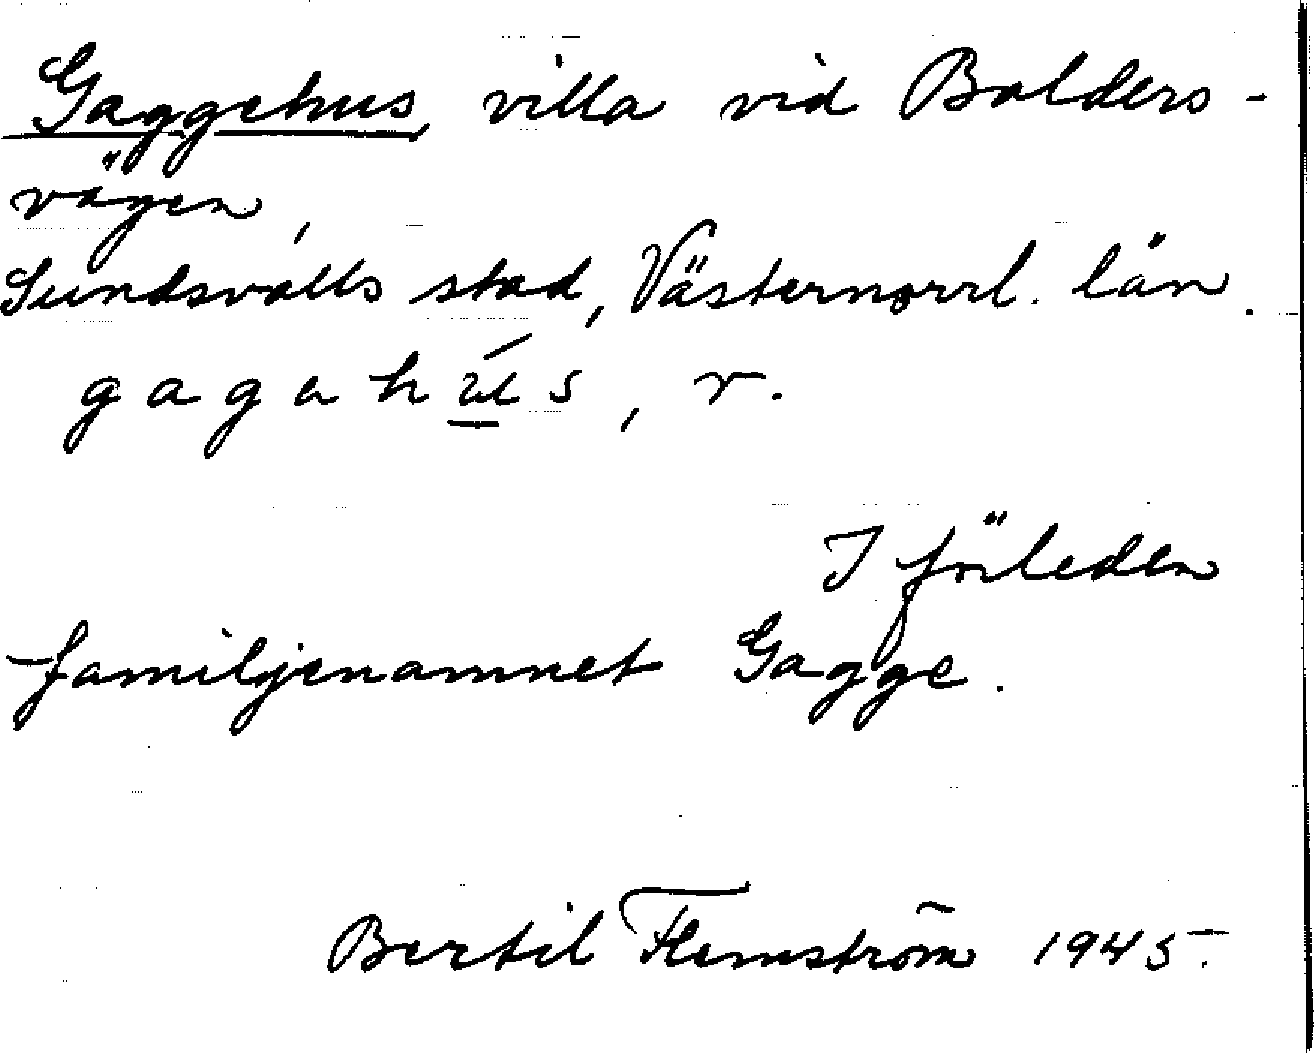 Gaggehus, villa vid Balders-
vägen,
Sundsvalls stad, Västernorrl. län.
gagahú̲s, r.
I förleden
familjenamnet Gagge.
Bertil Flemström 1945.